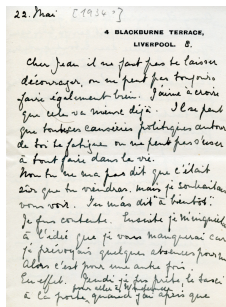 22. Mai [1934?]
4 BLACKBURNE TERRACE,
LIVERPOOL. 8.
Cher Jean il ne faut pas te laisser
décourager, on ne peut pas toujours
faire également bien. J'aime à croire
que cela va mieux déjà. Il se peut
que toutes ces causeries politiques autour
de toi te fatigue on ne peut
à tout faire dans la vie.
Non tu ne m'a pas dit que c'était
sûr que tu viendras, mais je souhaitais
vous voir. Tu m'as dit à bientôt!
Je fus contente. Ensuite je
à l'idée que je vous manquerai car
je prévoyais quelques absences
Alors c'est pour une autre fois.
En effet. je fus prête, le taxi
à la porte, quand j'ai